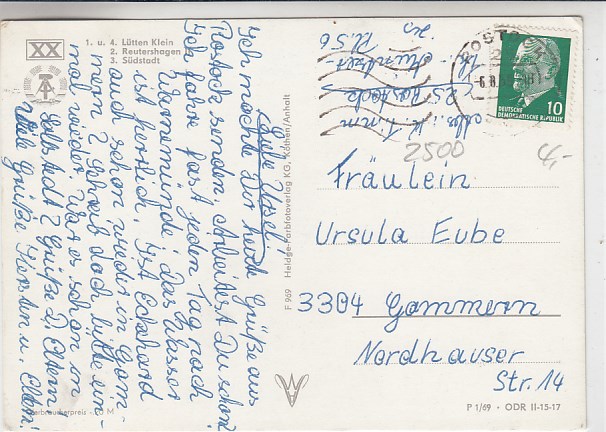 XX
1. u. 4. Lütten Klein
2. Reutershagen
3. Südstadt
Liebe Ursel!
Ich möchte Dir herzl. Grüße aus
Rostock senden. Arbeitest Du schon?
Ich fahre fast jeden Tag nach
Warnemünde, das Wasser
ist herrlich. Ist Eckehard
auch schon wieder in Gom-
mern? Schreib doch bitte ein-
mal wieder. War es schon in
Halle? Grüße D. Eltern!
Viele Grüße Kersten u. Eltern
Verbraucherpreis -,20 M
F 969 Heldge-Farbfotoverlag KG, Köthen/Anhalt
25 Rostock
ROSTOCK
10
DEUTSCHE
DEMOKRATISCHE REPUBLIK
2500
4,-
Fräulein
Ursula Eube
3304 Gommern
Nordhauser
Str. 14
P 1/69 · ODR II-15-17